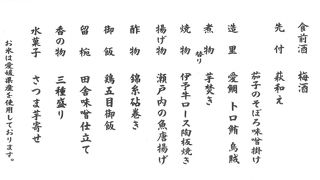 食前酒　梅酒
先付　萩和え
茄子のそぼろ味噌掛け
造里　愛鯛　トロ鮪　烏賊
煮物　芋焚き
替り
焼物　伊予牛ロース陶板焼き
揚げ物　瀬戸内の魚唐揚げ
酢物　錦糸砧巻き
御飯　鶏五目御飯
留椀　田舎味噌仕立て
香の物　三種盛り
水菓子　さつま芋寄せ
お米は愛媛県産を使用しております。